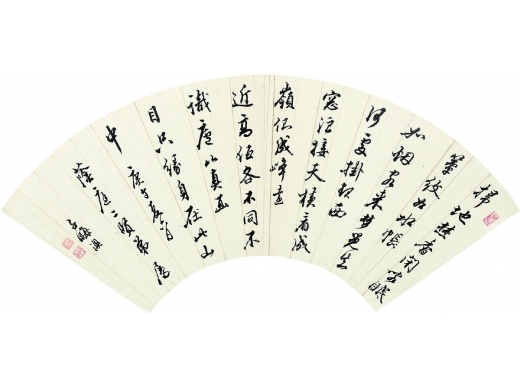 掃地焚香閉閣眠
簟紋如水帳
如烟客来夢覺知
何處掛起西
窓浪接天横看成
嶺側成峰遠
近高低各不同不
識廬山真面
目只緣身在此山
中 庚午
蔭庭二賢弟屬